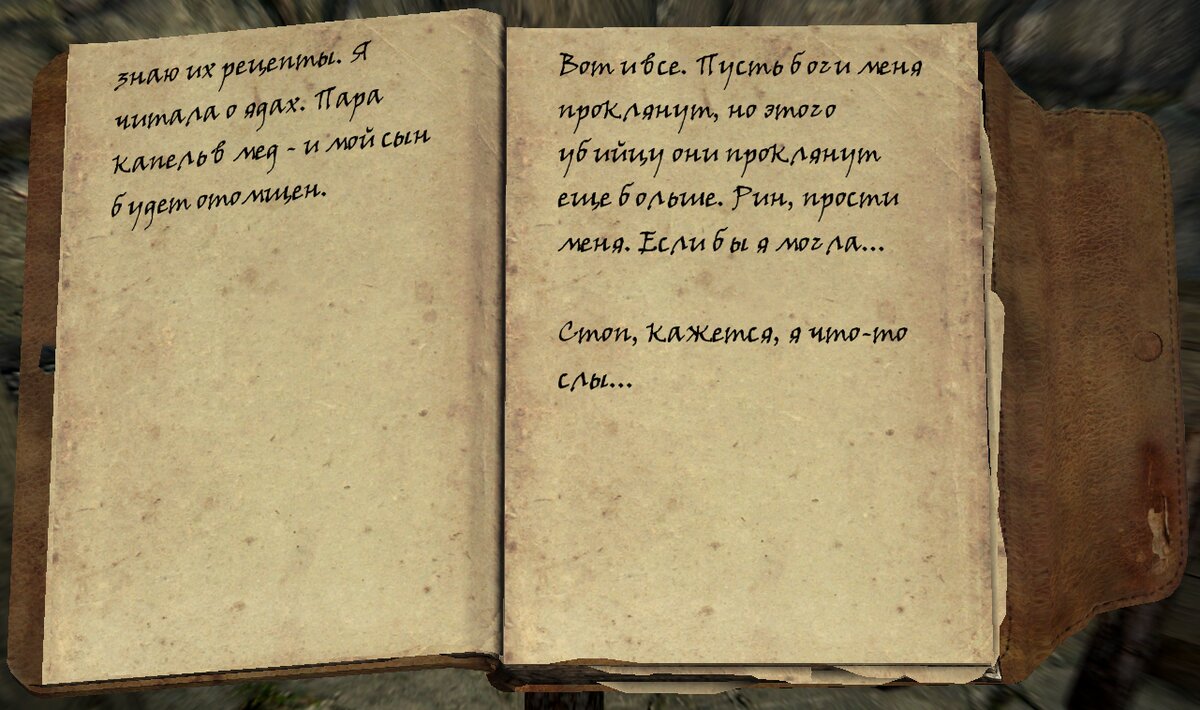 знаю их рецепты. Я
читала о ядах. Пара
капель в мед - и мой сын
будет отомщен.
Вот и все. Пусть боги меня
проклянут, но этого
убийцу они проклянут
еще больше. Рин, прости
меня. Если бы я могла...
Стоп, кажется, я что-то
слы...